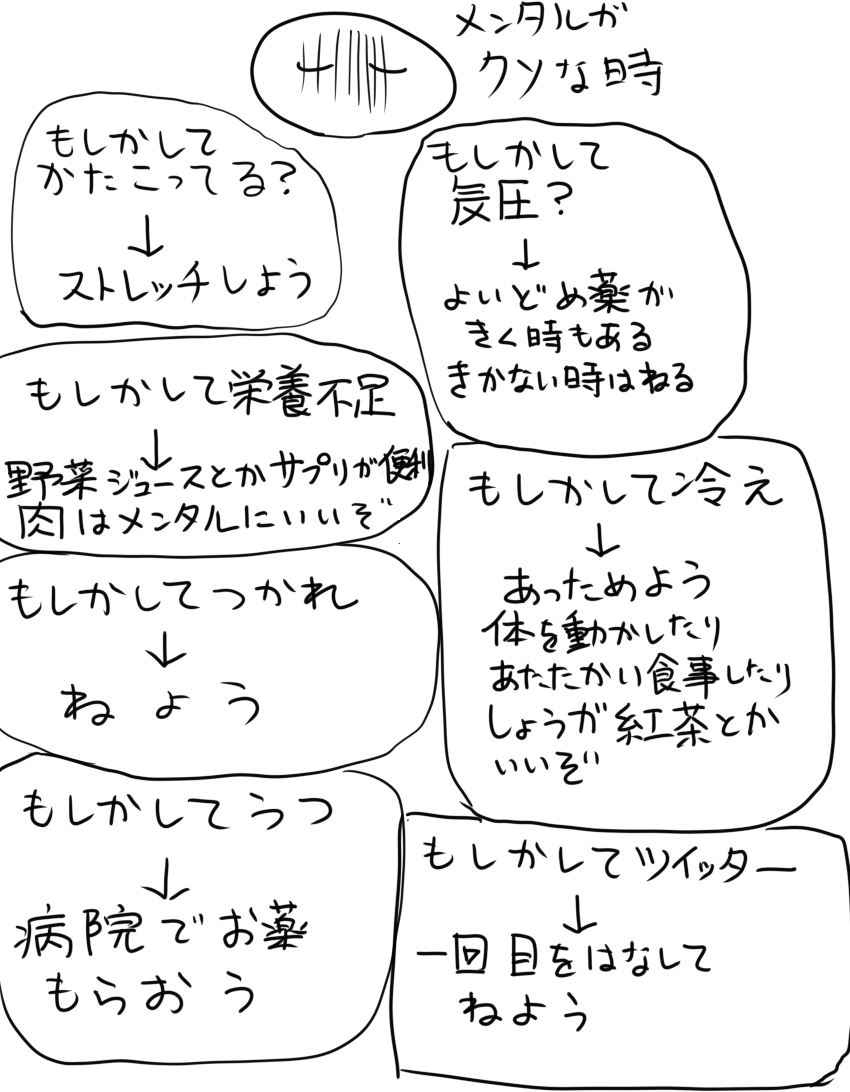 メンタルが
クソな時
もしかして
かたこってる?
↓
ストレッチしよう
もしかして
気圧?
↓
よいどめ薬が
きく時もある
きかない時はねる
もしかして栄養不足
↓
野菜ジュースとかサプリが便利
肉はメンタルにいいぞ
もしかして冷え
↓
あっためよう
体を動かしたり
あたたかい食事したり
しょうが紅茶とか
いいぞ
もしかしてつかれ
↓
ねよう
もしかしてうつ
↓
病院でお薬
もらおう
もしかしてツイッター
↓
一回目をはなして
ねよう